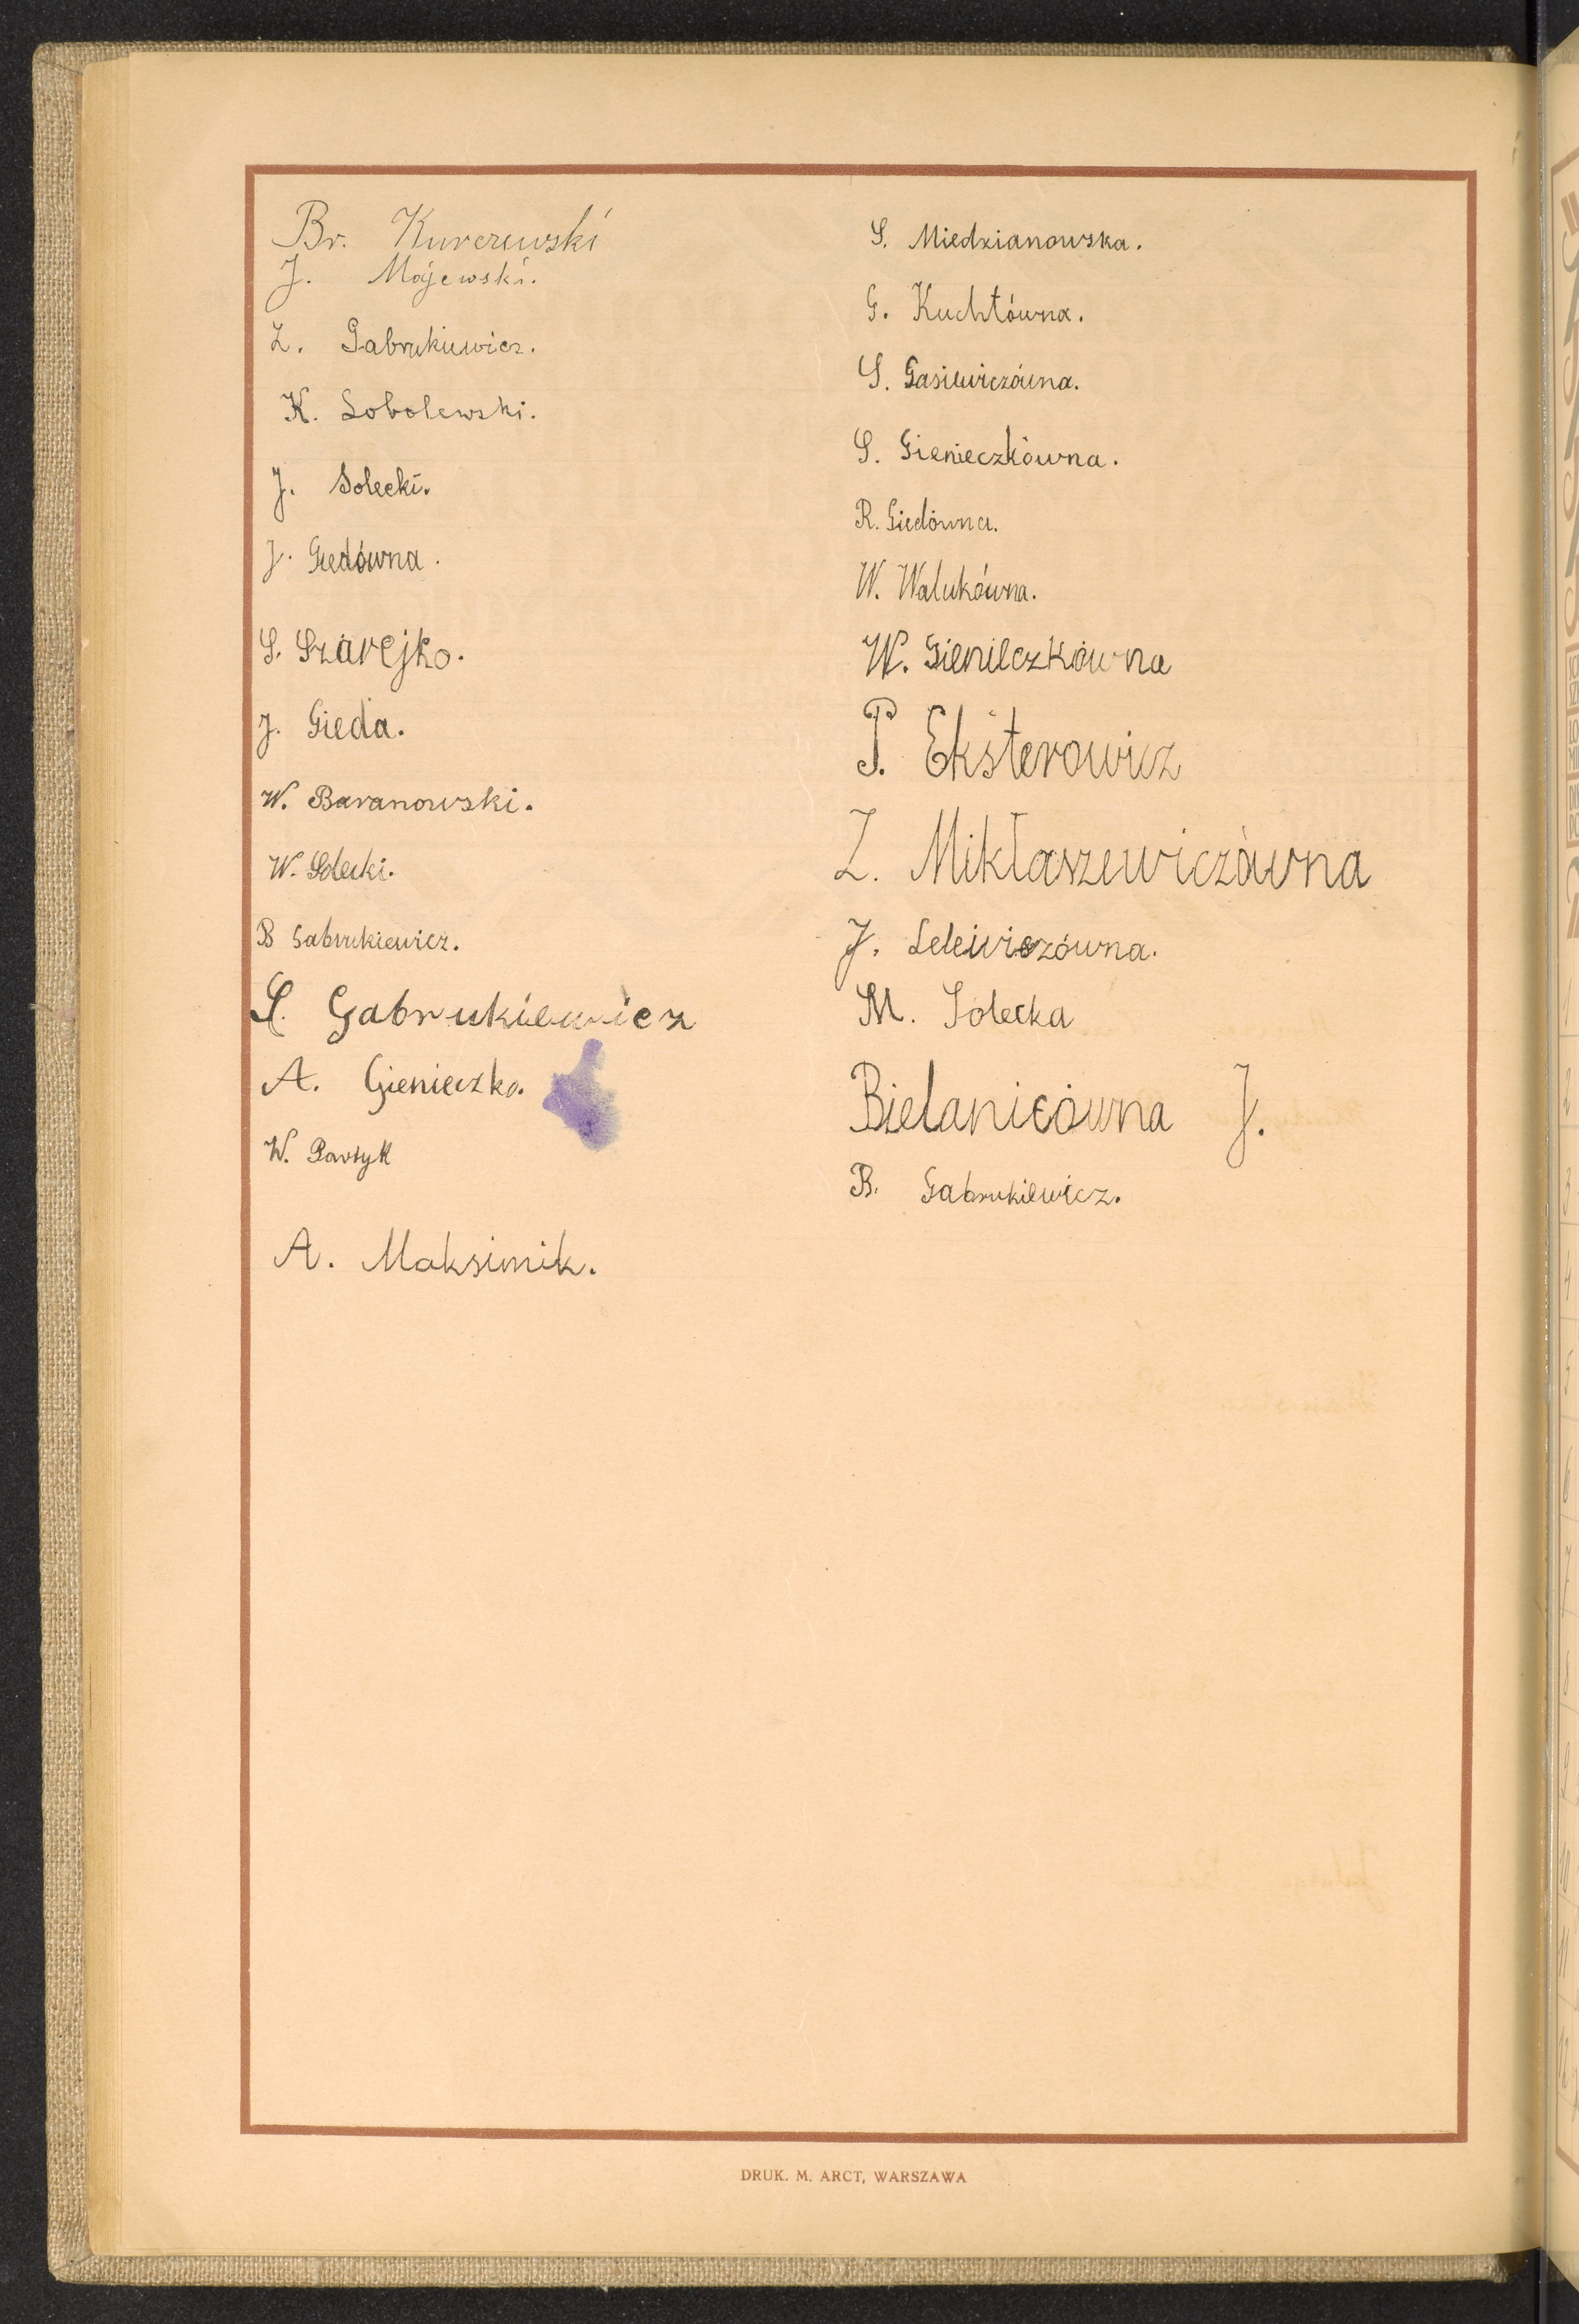 Br. Kurczewski
J. Majewski.
Z. Gabrukiewicz.
K. Sobolewski.
J. Solecki.
J. Giedówna.
S. Szarejko.
J. Gieda.
W. Baranowski.
W. Solecki.
B Gabrukiewicz.
S. Gabrukiewicz
A. Gienieczko.
W. Pawłyk
A. Maksimik.
S. Miedzianowska.
G. Kuchtówna.
S. Gasiewiczówna.
S. Gienieczkówna.
R. Giedówna.
W. Walukówna.
W. Gienieczkówna
P. Eksterowicz
Z. Mikłaszewiczówna
J. Lelewiczówna.
M. Solecka
Bielanicówna J.
B. Gabrukiewicz.
DRUK. M. ARCT, WARSZAWA